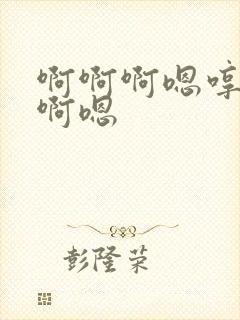 啊啊啊嗯啍
啊嗯
彭隆荣